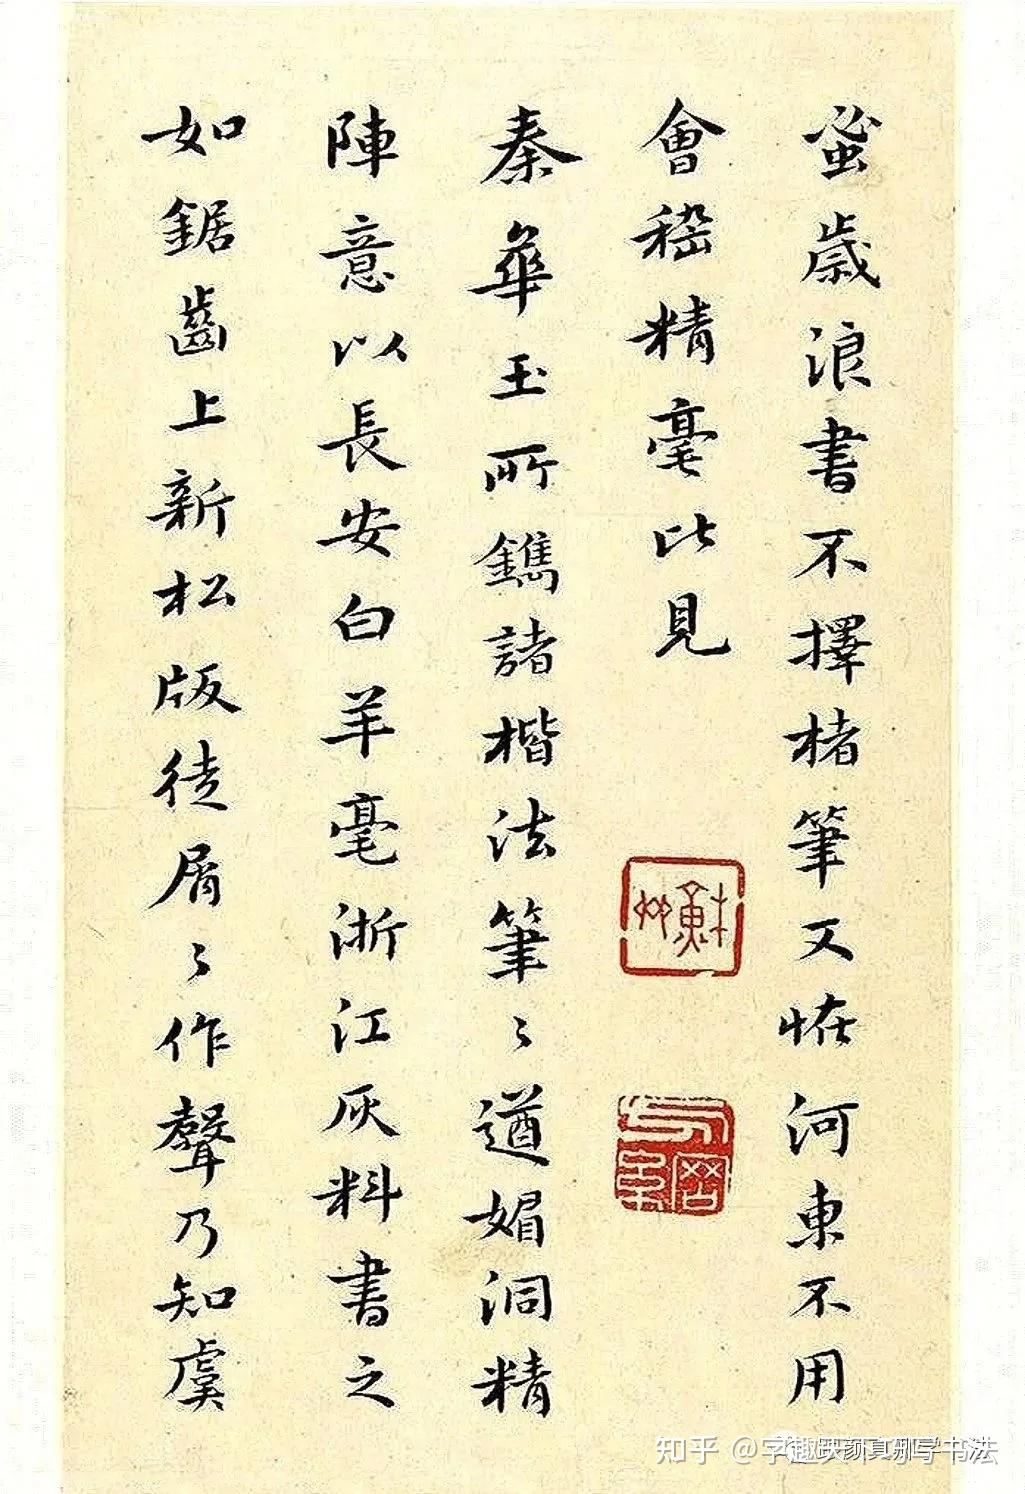 蚤歲浪書不擇楮筆又恠河東不用
會稽精毫比見
秦華玉所鐫諸楷法筆〻遒媚洞精
陣意以長安白羊毫浙江灰料書之
如鋸齒上新松版徒屑〻作聲乃知虞
知乎